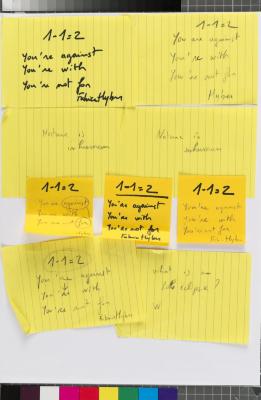 1-1=2
You're against
You're with
You're not for
Fabrice Hybert
1-1=2
You are against
You're with
You're not for
Nature is
inhuman
Nature is
inhuman
1-1=2
You're against
You're with
You're not for
1-1=2
You're against
You're with
You're not for
Fabrice Hybert
1-1=2
You're against
You're with
You're not for
1-1=2
You're against
You're with
You're not for
Fabrice Hybert
what is an
eclipse?
W